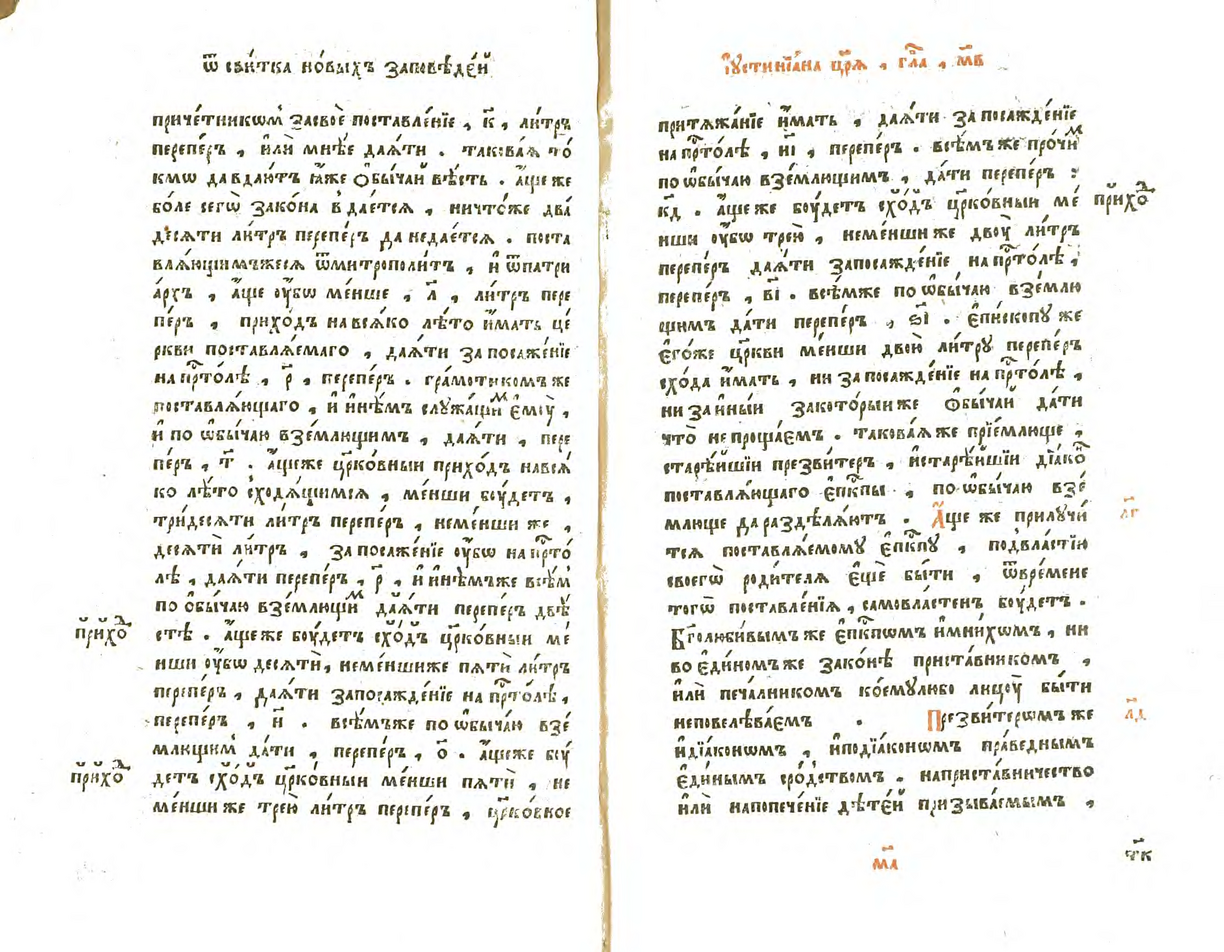 ѿ сви́тка но́выхъ за́повѣде́й
приче́тникѡм̾ засвоѐ поставле́нїе , к҃ , ли́тръ
перепе́ръ , и҆лѝ мнѣ́е дая́ти . такова́я то́
кмѡ да вдаю́тъ ꙗ҆́же ѻ҆бы́чай вѣ́сть . а҆́ще же
бо́ле сегѡ̀ зако́на вдае́тся , ничто́же два́
десяти ли́тръ перепе́ръ да недае́тся . поста
вля́ющимъжеся ѿмитрополи́тъ , и҆ ѿпатри
а́рхъ , а҆́ще ᲂу҆́бѡ ме́нше , л҃ , ли́тръ пере
пе́ръ , прихо́дъ на вся́ко лѣ́то и҆́мать це́
ркви поставля́емаго , дая́ти за посаже́нїе
на прⷭ҇то́лѣ , р҃ , перепе́ръ . гра́мотикомъ же
поставля́ющаго , и҆ и҆нѣ́мъ служа́щиⷨ є҆мꙋ̀ ,
и҆ по ѡ҆бы́чаю взе́млющимъ , дая́ти , пере
пе́ръ , т҃ . а҆́щеже црⷪ҇ко́вныи прихо́дъ нався́
ко лѣ́то сходя́щимся , ме́нши бꙋ́детъ ,
три́десяти ли́тръ перепе́ръ , неме́нши же ,
десятѝ ли́тръ , за посаже́нїе ᲂу҆́бѡ на прⷭ҇то́
лѣ , дая́ти перепе́ръ , р҃ , и҆ и҆нѣ́мъже всѣ́м̾
по ѻ҆бы́чаю взе́млющиⷨ дая́ти перепе́ръ двѣ́
стѣ . а҆́щеже бꙋ́детъ схо́дъ црⷪ҇ко́вныи ме́
нши ᲂу҆́бѡ десятѝ, неме́ншиже пятѝ ли́тръ
перепе́ръ , дая́ти запосажде́нїе на прⷭ҇то́лѣ ,
перепе́ръ , н҃ . всѣ́мъже по ѡ҆бы́чаю взе́
млющим̾ да́ти , перепе́ръ , о҃ . а҆́щеже бꙋ́
детъ схо́дъ црⷪ҇ко́вныи ме́нши пятѝ , не
ме́нши же трею̀ ли́тръ перепе́ръ , црⷪ҇ко́вное
прихоⷣ
прихоⷣ
І҆ꙋстинїа́на цр҃я , гла҃ , мв҃
притяжа́нїе и҆́мать , дая́ти за посажде́нїе
на прⷭ҇то́лѣ , ні҃ , перепе́ръ . всѣ́мъ же про́чиⷨ
по ѡ҆бы́чаю взе́млющимъ , да́ти перепе́ръ :
кд҃ . а҆́ще же бꙋ́детъ схо́дъ црⷪ҇ко́вныи ме́
нши ᲂу҆́бѡ трею̀ , неме́нши же двꙋ̀ ли́тръ
перепе́ръ дая́ти запосажде́нїе на прⷭ҇то́лѣ ,
перепе́ръ , ві҃ . всѣ́мже по ѡ҆бы́чаю взе́млю
щимъ да́ти перепе́ръ , ѕі҃ . є҆пископꙋ же
є҆го́же цр҃кви ме́нши двою̀ ли́трꙋ перепе́ръ
схо́да и҆́мать , ни за посажде́нїе на прⷭ҇то́лѣ ,
ни за и҆ны́й за кото́рыи же ѻ҆бы́чай да́ти
что̀ не проща́емъ . такова́я же прїе́млюще ,
старѣ́йшїи презви́теръ , и҆старѣ́йшїи дїа́коⷩ
поставля́ющаго є҆пкⷭ҇пы , по ѡ҆бы́чаю взе́
млюще да раздѣля́ютъ . А҆́ще же прилꙋчи́
тся поставля́емомꙋ є҆пкⷭ҇пꙋ , подвла́стїю
своегѡ̀ роди́теля є҆щѐ бы́ти , ѿвре́мене
тогѡ̀ поставле́нїя , самовла́стенъ бꙋ́детъ .
Бг҃олюби́вымъ же є҆пкⷭ҇пѡмъ и҆мни́хѡмъ , ни
во є҆ди́номъ же зако́нѣ приста́вникомъ ,
и҆лѝ печа́лникомъ коемꙋ́любо лицꙋ̀ бы́ти
неповелѣва́емъ . Презви́терѡмъ же
и҆дїа́конѡмъ , и҆подїа́конѡмъ пра́веднымъ
є҆ди́нымъ сро́дствомъ . наприста́вничество
и҆лѝ напопече́нїе дѣте́й призыва́емымъ ,
прихоⷣ
лг҃
лд҃
ма҃
тк҃